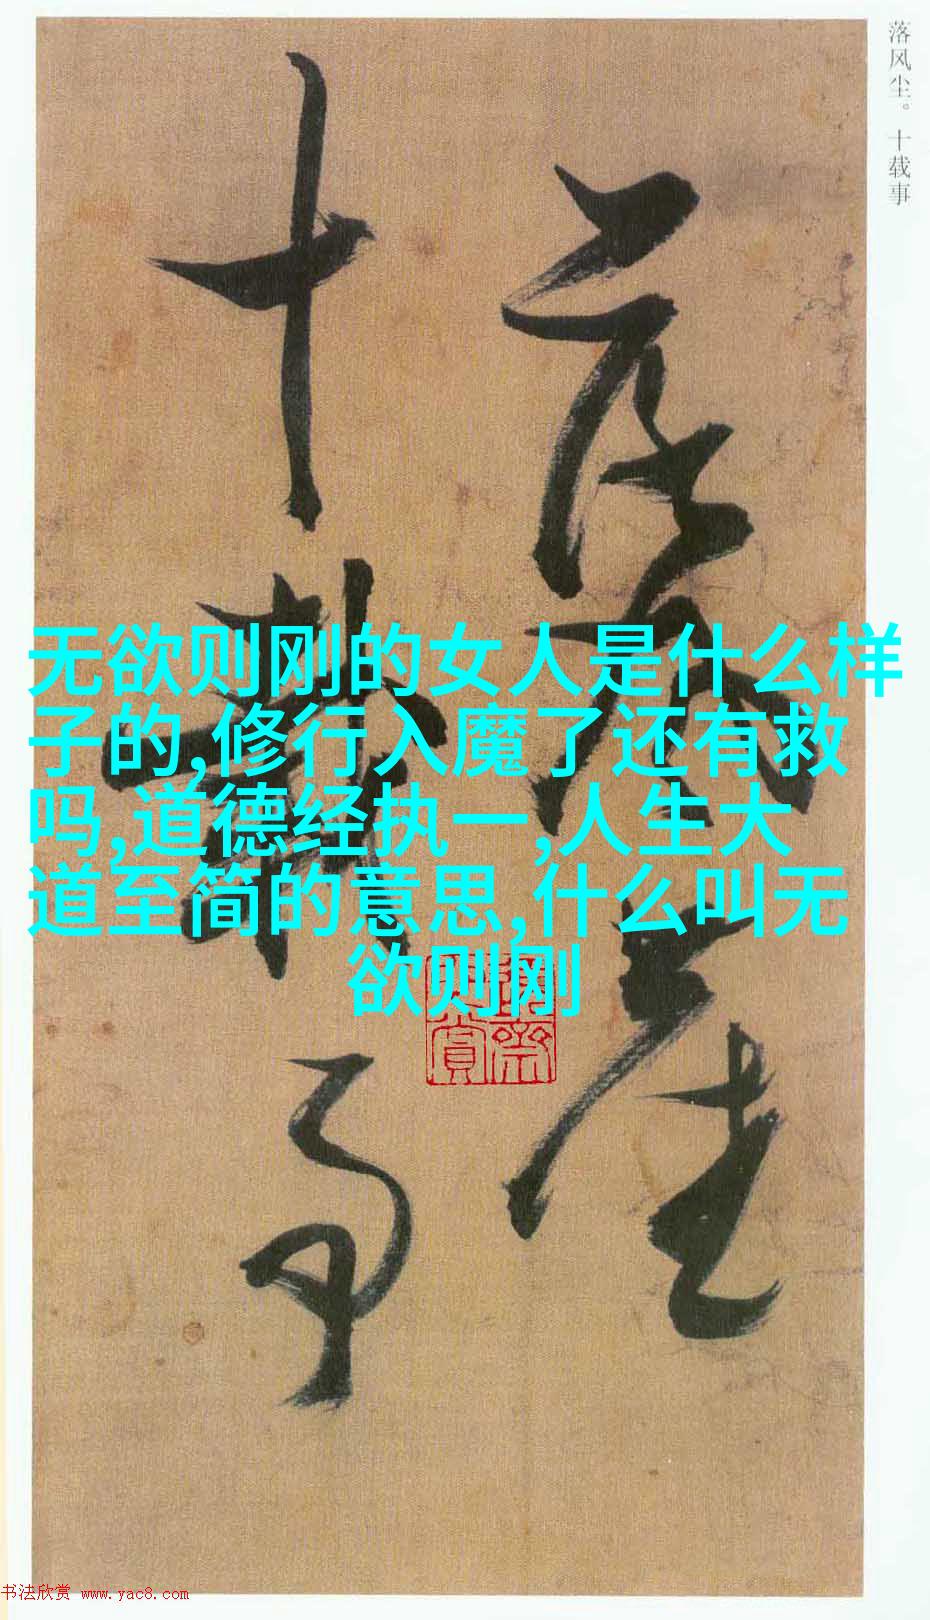 落风尘。十载事
落风尘
十载事
无欲则刚的女人是什么样
子的,修行入魔了还有救
吗,道德经执一,人生大
道至简的意思,什么叫无
欲则刚
书法欣赏 www.yac8.com